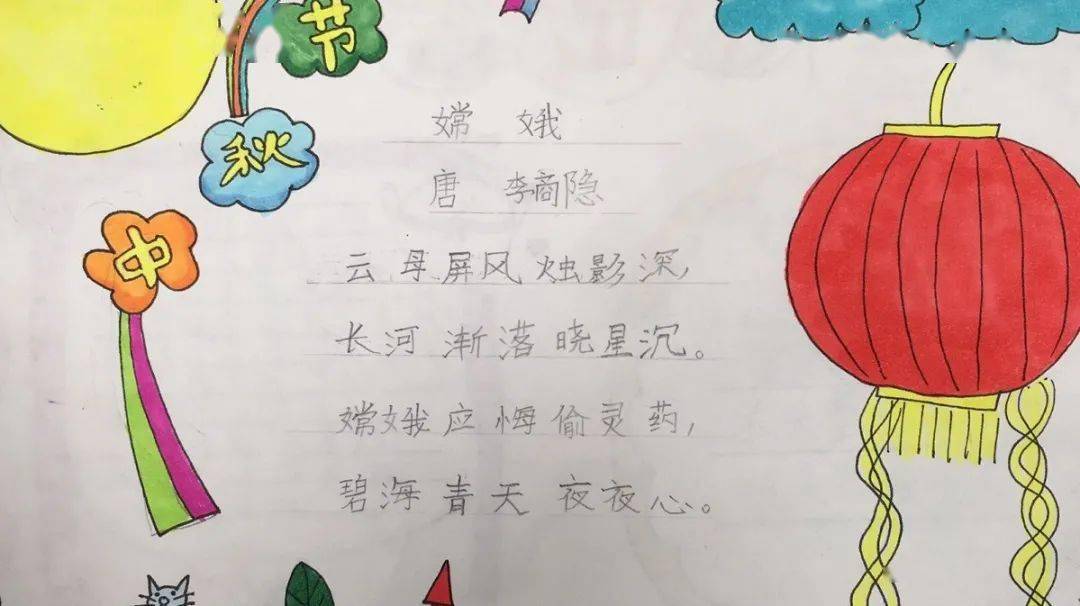 中秋节
嫦 娥
唐 李商隐
云母屏风烛影深，
长河渐落晓星沉。
嫦娥应悔偷灵药，
碧海青天夜夜心。